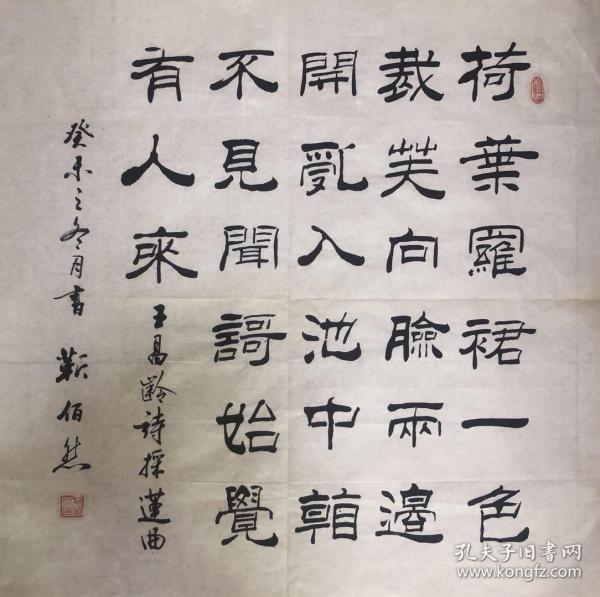 荷葉羅裙一色
裁芙向臉兩邊
開亂入池中看
不見聞謌始覺
有人來
王昌齡詩採蓮曲
癸未之冬月書 靳佰然
孔夫子旧书网
www.kongfz.com